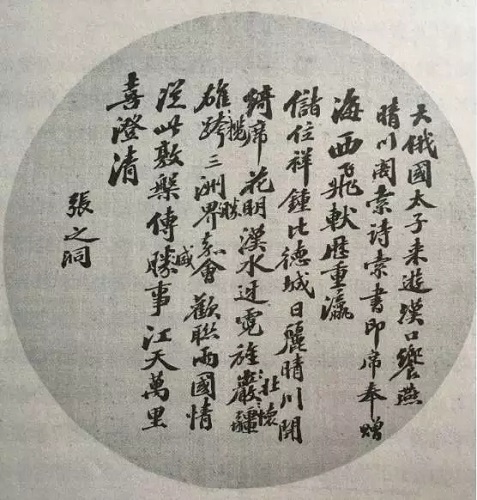 大俄國太子来遊漢口饗燕
晴川閣索詩索書即席奉贈
海西飛軾歴重瀛
儲位祥鍾比德城日麗晴川開
綺席花明漢水迓霓旌嚴疆
壮懷
雄跨三洲界嘉會歡聯兩國情
攬
勝
從此敦槃傳勝事江天萬里
盛
喜澄清
張之洞